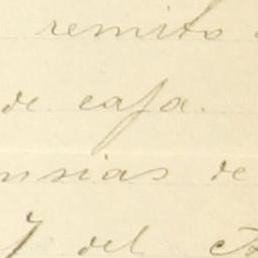 remito
de cafa.
nsias de
y del